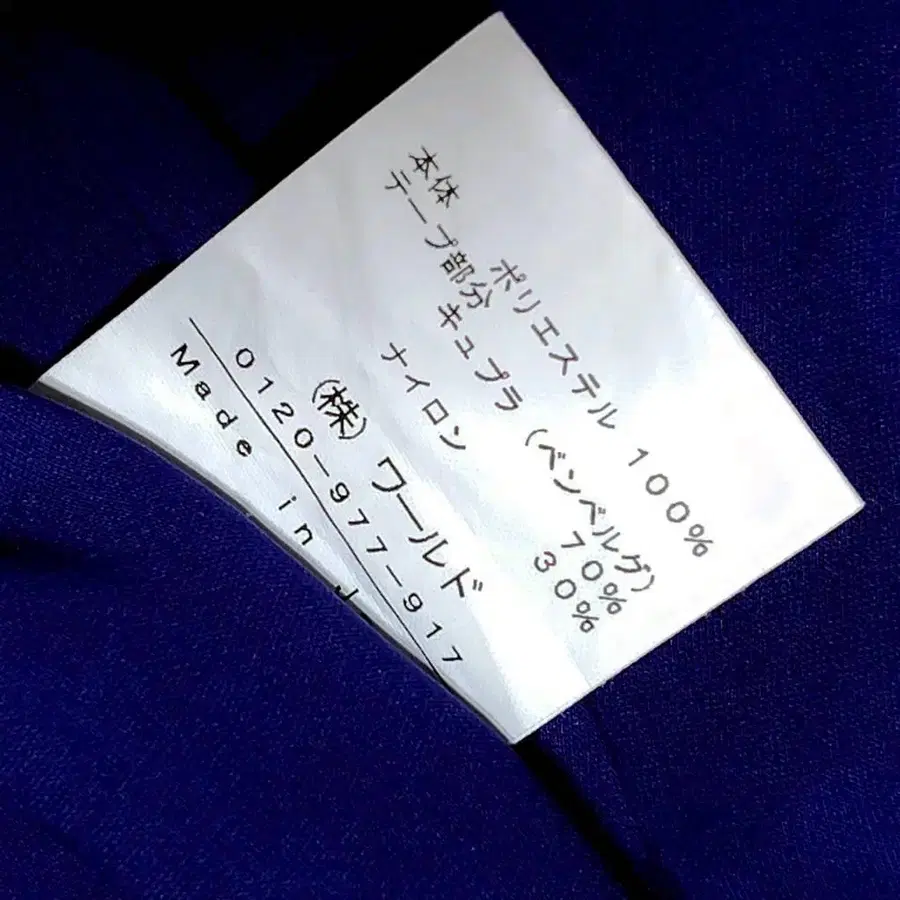 本体
ポリエステル 100%
テープ部分
キュプラ (ベンベルグ)
70%
ナイロン 30%
(株) ワールド
0120-977-917
Made in J